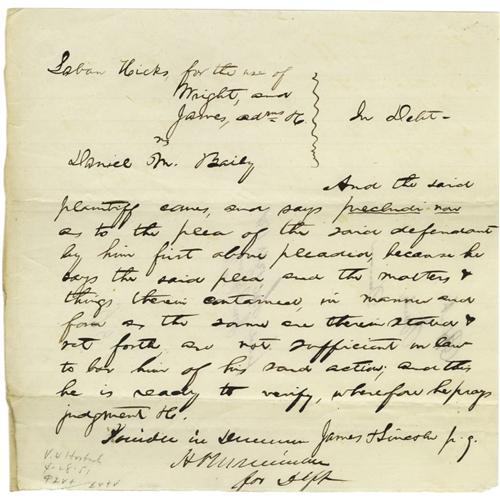 Laban Hicks, for the use of
Wright, and
James, adms &c
vs
In Debt-
Daniel M. Baily
And the said
plaintiff comes, and says precludi non
as to the plea of the said defendant
by him first above pleaded, because he
says the said plea and the matters &
things therein contained, in manner and
form as the same are therein stated &
set forth are not sufficient in law
to bar him of his said action; and this
he is ready to verify, wherefore he prays
judgment &c.
James & Lincoln p. q.
Joinder in Demurrer
for Deft